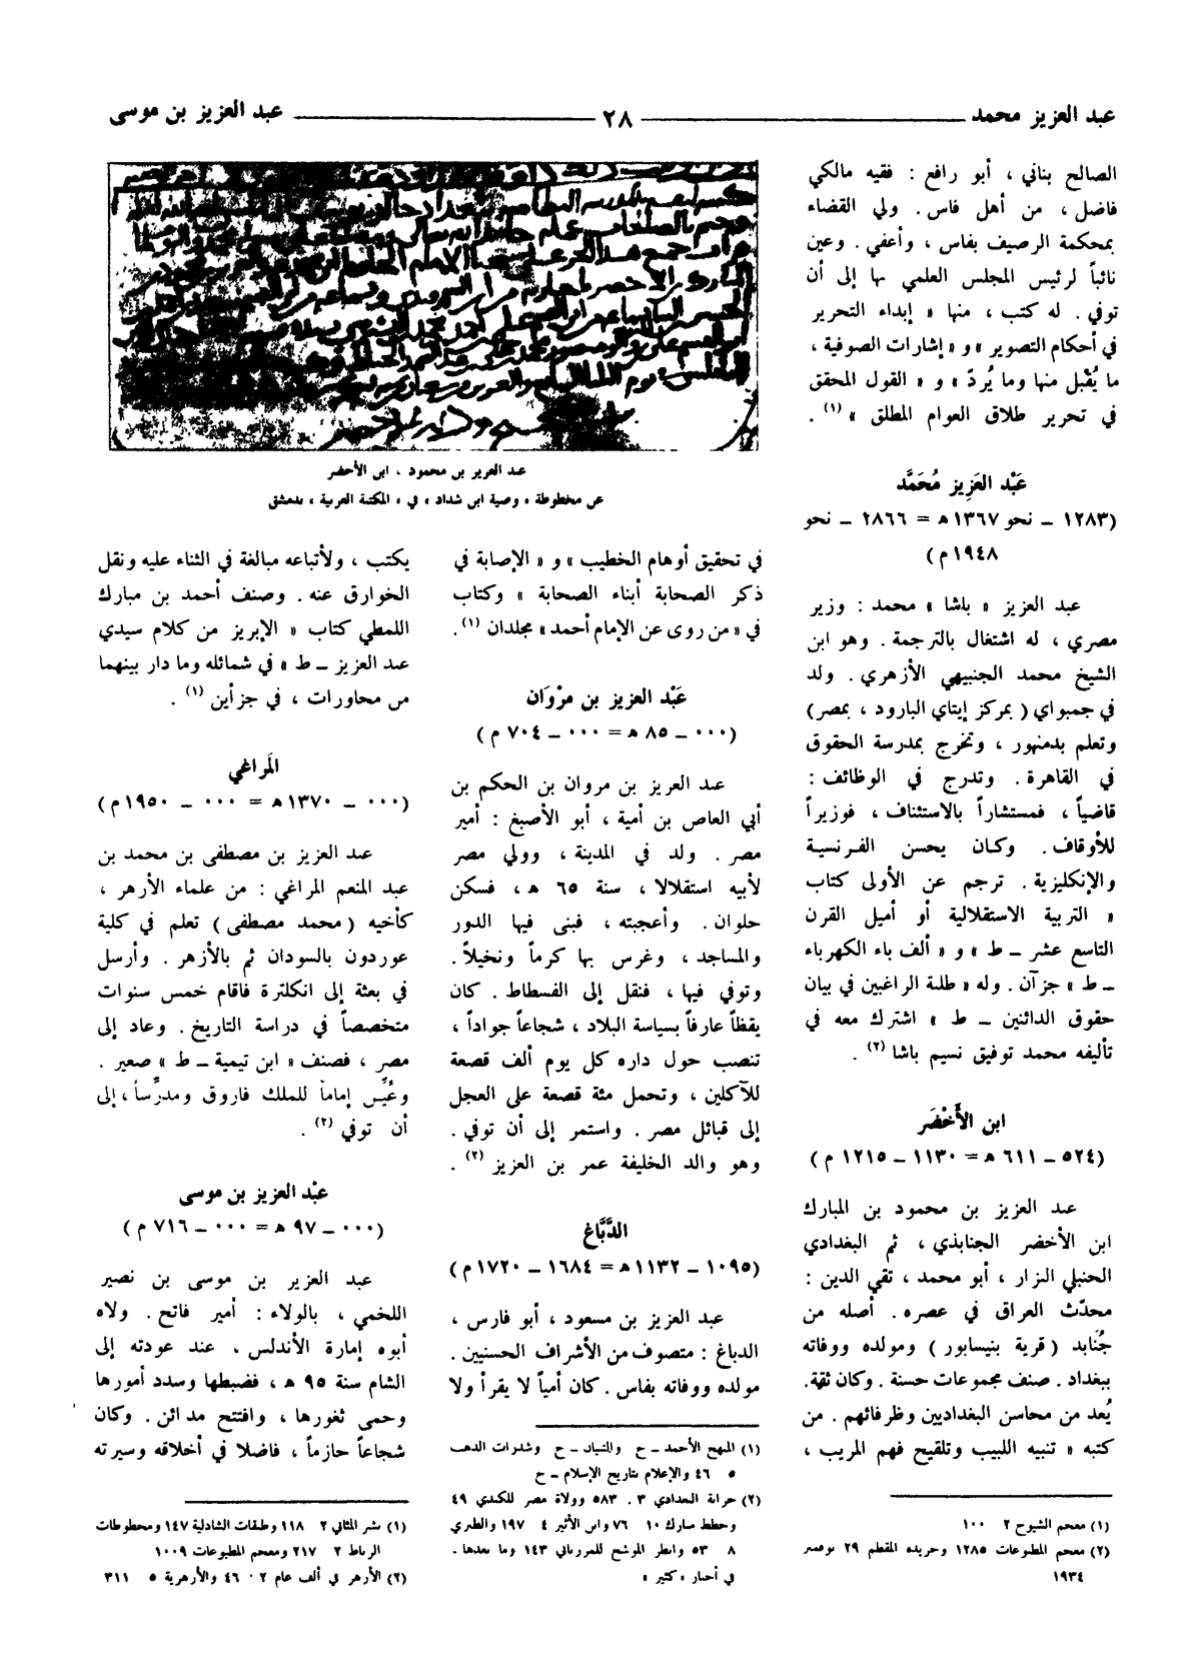 عبد العزيز محمد
٢٨
عبد العزيز بن موسى
الصالح بناني ، أبو رافع : فقيه مالكي
فاضل ، من أهل فاس . ولي القضاء
بمحكمة الرصيف بفاس ، وأعفي . وعين
نائباً لرئيس المجلس العلمي بها إلى أن
توفي . له كتب ، منها « إبداء التحرير
في أحكام التصوير » و « إشارات الصوفية ،
ما يُقْبل منها وما يُردّ » و « القول المحقق
في تحرير طلاق العوام المطلق » (١) .
عَبْد العَزِيز مُحَمَّد
(١٢٨٣ – نحو ١٣٦٧ه = ٢٨٦٦ – نحو
١٩٤٨م)
عبد العزيز « باشا » محمد : وزير
مصري ، له اشتغال بالترجمة . وهو ابن
الشيخ محمد الجنبيهي الأزهري . ولد
في جمبواي ( بمركز إيتاي البارود ، بمصر)
وتعلم بدمنهور ، وتخرج بمدرسة الحقوق
في القاهرة . وتدرج في الوظائف :
قاضياً ، فمستشاراً بالاستئناف ، فوزيراً
للأوقاف . وكان يحسن الفرنسية
والإنكليزية . ترجم عن الأولى كتاب
« التربية الاستقلالية أو أميل القرن
التاسع عشر – ط » و « ألف باء الكهرباء
– ط » جزآن . وله « طلبة الراغبين في بيان
حقوق الدائنين – ط » اشترك معه في
تأليفه محمد توفيق نسيم باشا (٢) .
ابن الأَخْضَر
(٥٢٤ – ٦١١ ه = ١١٣٠ – ١٢١٥ م)
عبد العزيز بن محمود بن المبارك
ابن الأخضر الجنابذي ، ثم البغدادي
الحنبلي البزار ، أبو محمد ، تقي الدين :
محدّث العراق في عصره . أصله من
جُنَابد ( قرية بنيسابور ) ومولده ووفاته
ببغداد . صنف مجموعات حسنة . وكان ثقة .
يُعد من محاسن البغداديين وظرفائهم . من
كتبه « تنبيه اللبيب وتلقيح فهم المريب ،
(١) معجم الشيوخ ٢ ١٠٠
(٢) معجم المطبوعات ١٢٨٥ وجريدة المقطم ٢٩ نوفمبر
١٩٣٤
عبد العزيز بن محمود ، ابن الأخضر
عن مخطوطة « وصية ابن شداد » في « المكتبة العربية » بدمشق
في تحقيق أوهام الخطيب » و « الإصابة في
ذكر الصحابة أبناء الصحابة » وكتاب
في « من روى عن الإمام أحمد » مجلدان (١) .
عَبْد العزيز بن مرْوَان
(٠٠٠ – ٨٥ ه = ٠٠٠ – ٧٠٤ م)
عبد العزيز بن مروان بن الحكم بن
أبي العاص بن أمية ، أبو الأصبغ : أمير
مصر . ولد في المدينة ، وولي مصر
لأبيه استقلالا ، سنة ٦٥ ه ، فسكن
حلوان . وأعجبته ، فبنى فيها الدور
والمساجد ، وغرس بها كرماً ونخيلاً .
وتوفي فيها ، فنقل إلى الفسطاط . كان
يقظاً عارفاً بسياسة البلاد ، شجاعاً جواداً ،
تنصب حول داره كل يوم ألف قصعة
للآكلين ، وتحمل مئة قصعة على العجل
إلى قبائل مصر . واستمر إلى أن توفي .
وهو والد الخليفة عمر بن العزيز (٢) .
الدَّبَّاغ
(١٠٩٥ – ١١٣٢ه = ١٦٨٤ – ١٧٢٠م)
عبد العزيز بن مسعود ، أبو فارس ،
الدباغ : متصوف من الأشراف الحسنيين .
مولده ووفاته بفاس . كان أمياً لا يقرأ ولا
(١) المنهج الأحمد – خ والتبيان – خ وشذرات الذهب
٥ ٤٦ والإعلام بتاريخ الإسلام – خ
(٢) خزانة البغدادي ٣ . ٥٨٣ وولاة مصر للكندي ٤٩
وخطط مبارك ١٠ ٧٦ وابن الأثير ٤ ١٩٧ والطبري
٨ ٥٣ وانظر الموشح للمرزباني ١٤٣ وما بعدها .
في أخبار « كثير »
يكتب ، ولأتباعه مبالغة في الثناء عليه ونقل
الخوارق عنه . وصنف أحمد بن مبارك
اللمطي كتاب « الإبريز من كلام سيدي
عبد العزيز – ط » في شمائله وما دار بينهما
من محاورات ، في جزأين (١) .
المَراغي
(٠٠٠ – ١٣٧٠ه = ٠٠٠ – ١٩٥٠م)
عبد العزيز بن مصطفى بن محمد بن
عبد المنعم المراغي : من علماء الأزهر ،
كأخيه ( محمد مصطفى ) تعلم في كلية
غوردون بالسودان ثم بالأزهر . وأرسل
في بعثة إلى انكلترة فاقام خمس سنوات
متخصصاً في دراسة التاريخ . وعاد إلى
مصر ، فصنف « ابن تيمية – ط » صغير .
وعُيِّن إماماً للملك فاروق ومدرِّساً ، إلى
أن توفي (٢) .
عبْد العزيز بن موسى
(٠٠٠ – ٩٧ ه = ٠٠٠ – ٧١٦ م)
عبد العزيز بن موسى بن نصير
اللخمي ، بالولاء : أمير فاتح . ولاه
أبوه إمارة الأندلس ، عند عودته إلى
الشام سنة ٩٥ ه ، فضبطها وسدد أمورها
وحمى ثغورها ، وافتتح مدائن . وكان
شجاعاً حازماً ، فاضلا في أخلاقه وسيرته
(١) نشر المثاني ٢ ١١٨ وطبقات الشاذلية ١٤٧ ومخطوطات
الرباط ٢ ٢١٧ ومعجم المطبوعات ١٠٠٩
(٢) الأزهر في ألف عام ٢ ٤٦٠ والأزهرية ٥ ٣١١